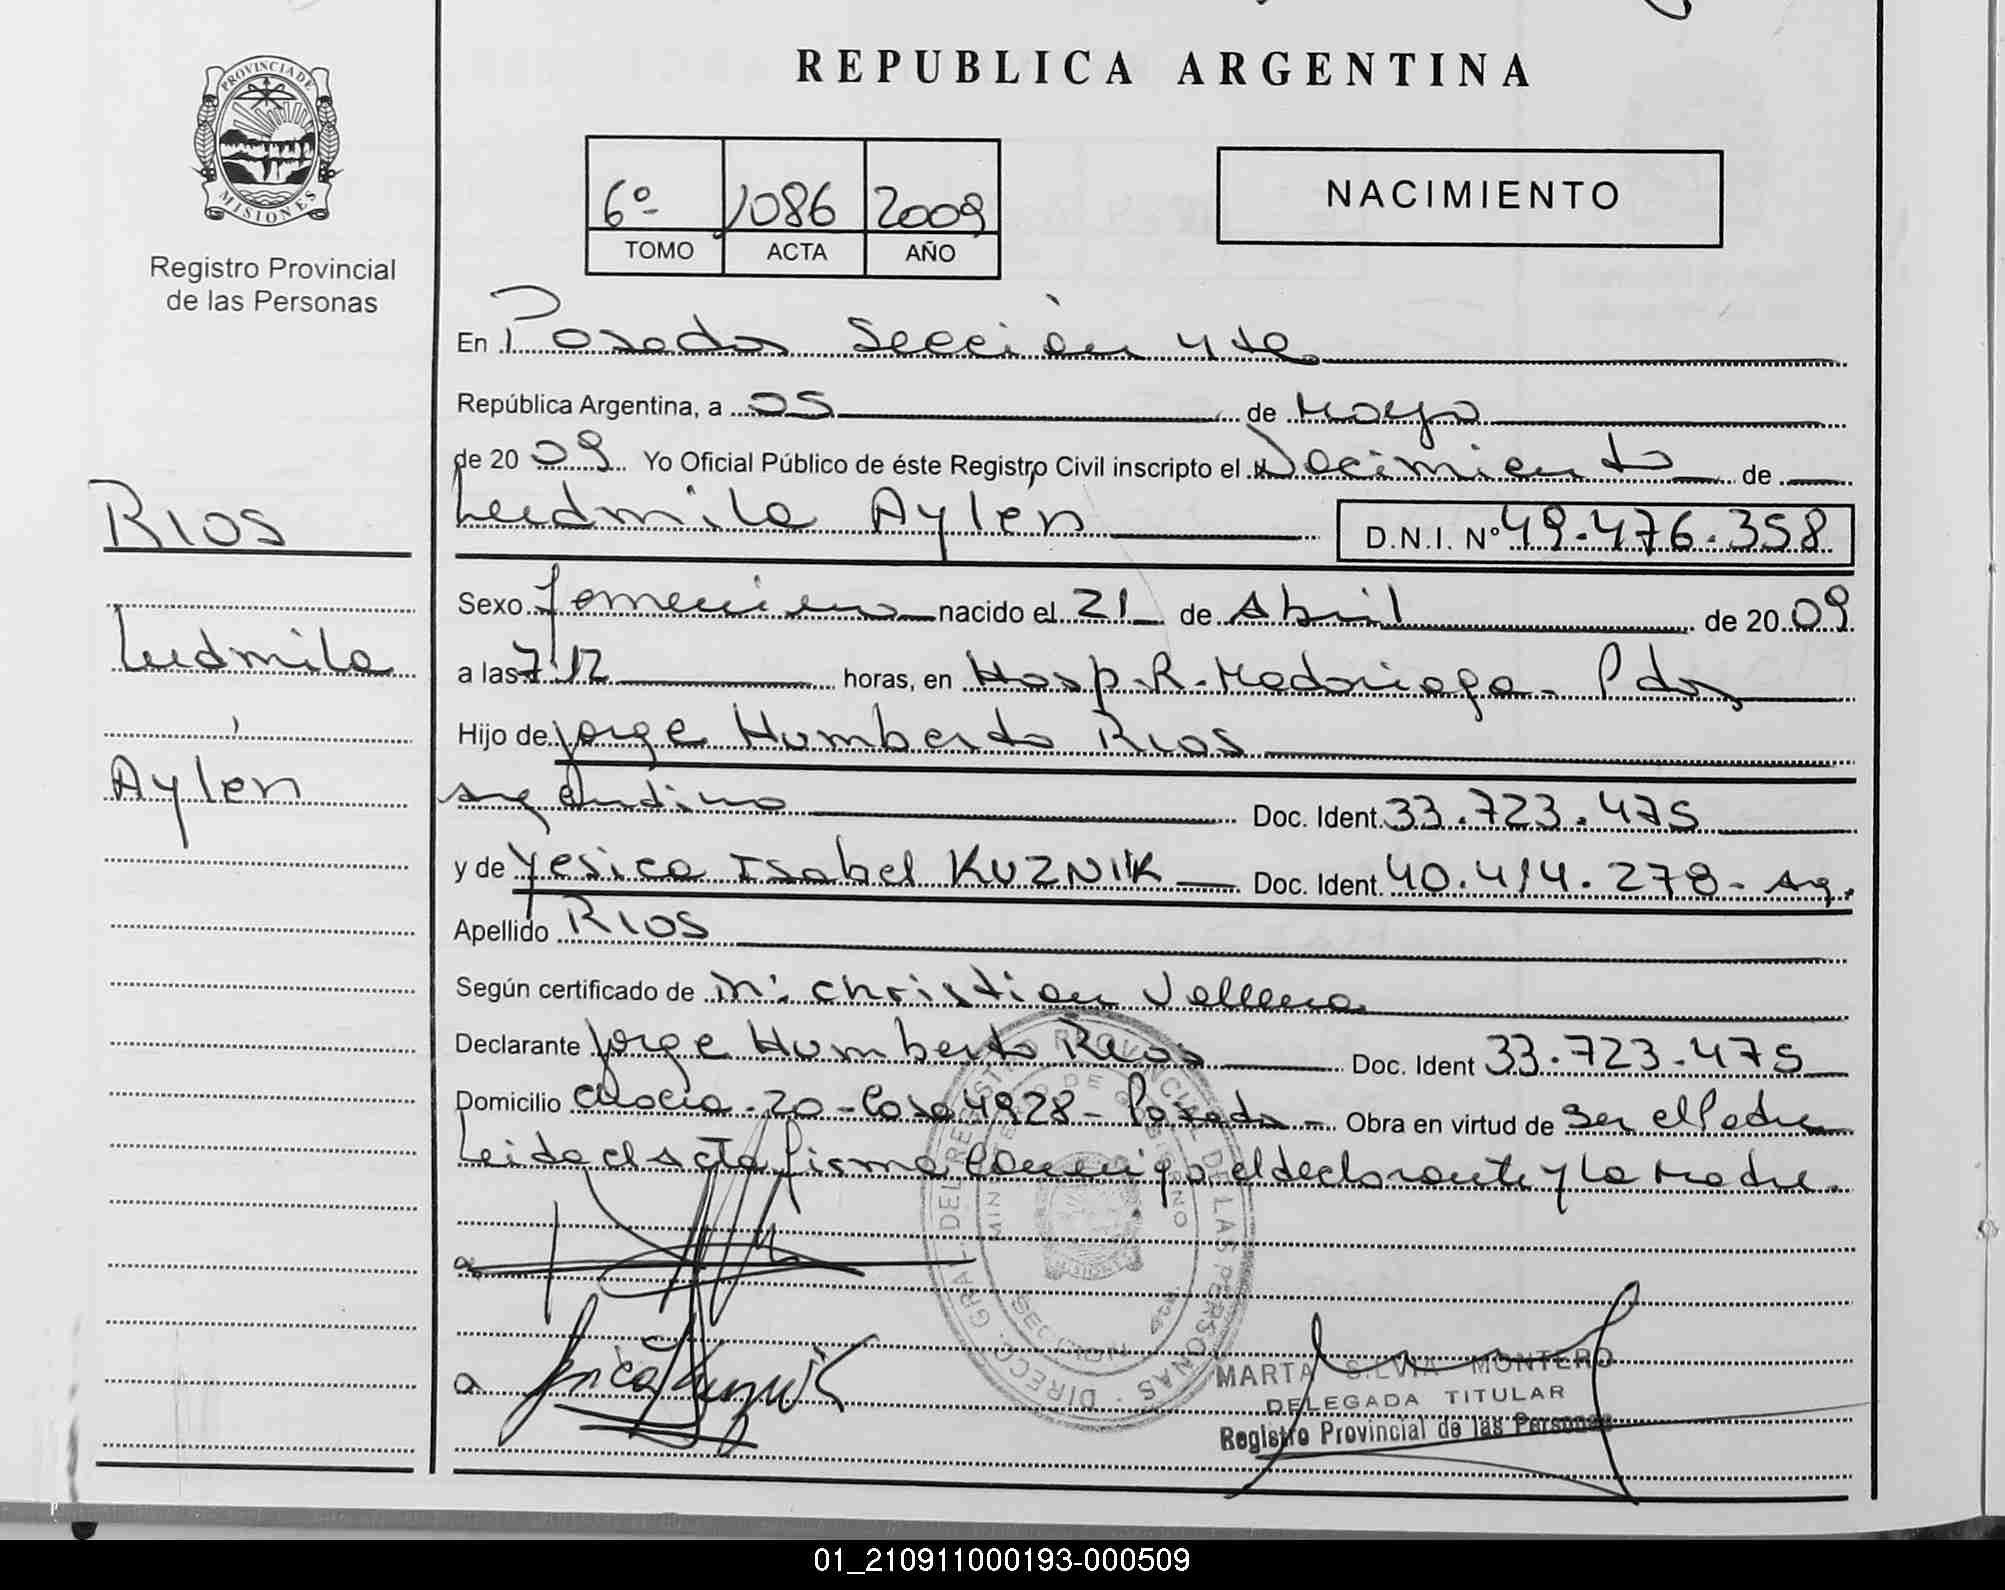 REPUBLICA ARGENTINA
PROVINCIA DE
MISIONES
Registro Provincial
de las Personas
6º 1086 2009
TOMO ACTA AÑO
NACIMIENTO
En Posadas Sección 4ta
República Argentina, a 05 de Mayo
de 20 09 Yo Oficial Público de éste Registro Civil inscripto el Nacimiento de
Ludmila Aylén D.N.I. Nº 49.476.358
RIOS
Ludmila
Aylén
Sexo femenino nacido el 21 de Abril de 20 09
a las 7:12 horas, en Hosp. R. Madariaga - Pdas
Hijo de Jorge Humberto Rios
argentino Doc. Ident. 33.723.475
y de Yesica Isabel KUZNIK Doc. Ident. 40.414.278 - Arg.
Apellido RIOS
Según certificado de Christian
Declarante Jorge Humberto Rios Doc. Ident 33.723.475
Domicilio Chacra - 20 - Casa 4928 - Posadas - Obra en virtud de ser el Padre
Leida el acta firma conmigo el declarante y la Madre.
DIRECC. GRAL. DEL REGISTRO PROVINCIAL DE LAS PERSONAS
SECCION
MARTA SILVIA MONTERO
DELEGADA TITULAR
Registro Provincial de las Personas
01_210911000193-000509